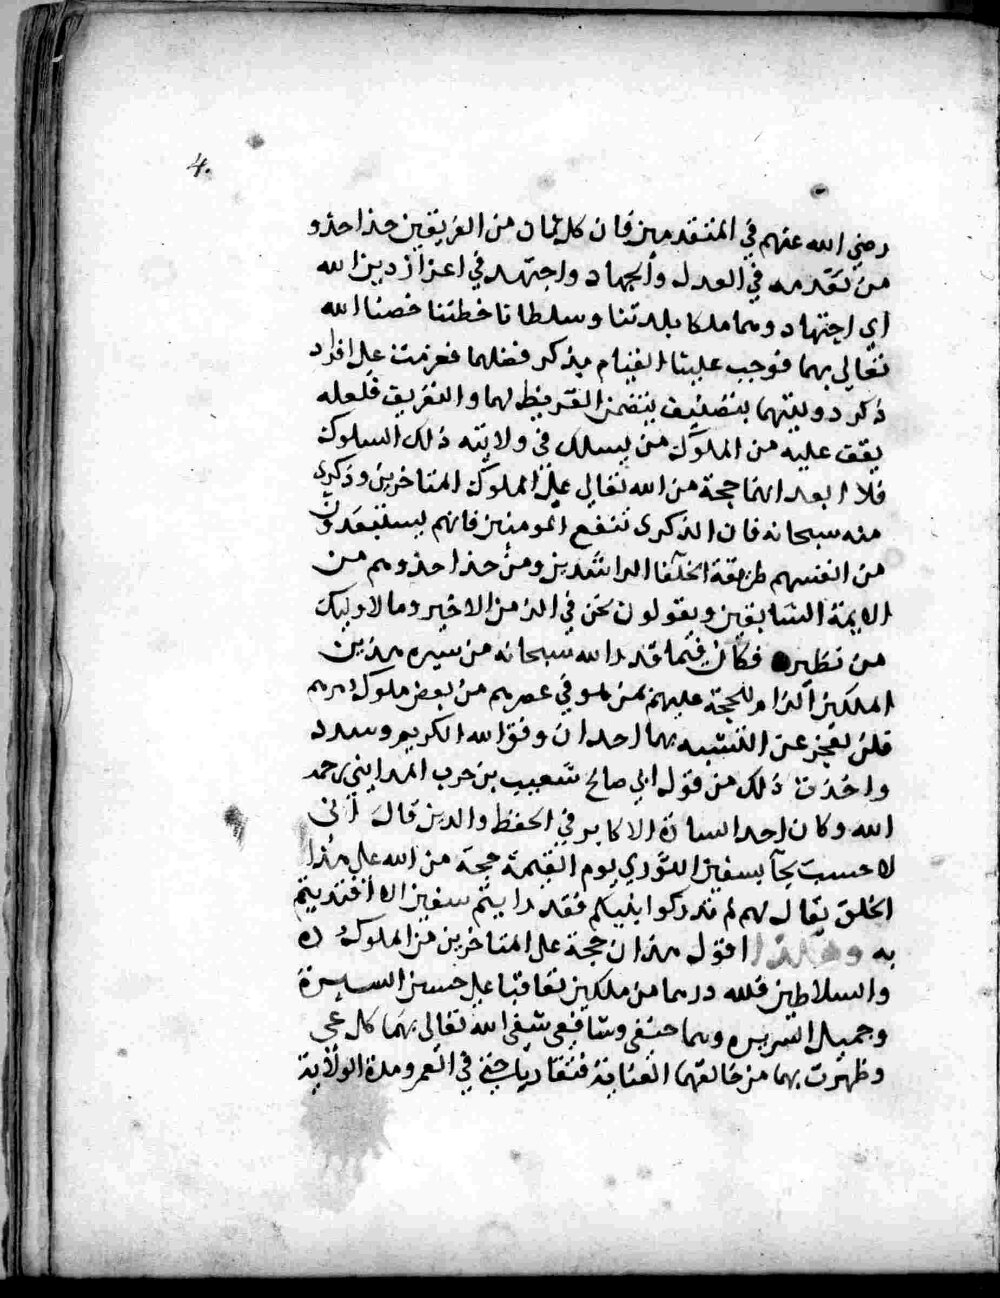 4.
رضي الله عنهم في المتقدمين فان كل ثمان من الفريقين حذا حذو
من تقدمه في العدل والجهاد واجتهد في اعزاز دين الله
اي اجتهاد وهما ملكا بلدتنا وسلطانا خطتنا خصنا الله
تعالي بهما فوجب علينا القيام بذكر فضلهما فعزمت علي افراد
ذكر دولتيهما بتصنيف يتضمن التقريظ لهما والتعريف فلعله
يقف عليه من الملوك من يسلك في ولايته ذلك السلوك
فلا ابعد انهما حجة من الله تعالي علي الملوك المتاخرين وذكري
منه سبحانه فان الذكري تنفع المومنين فانهم يستبعدون
من انفسهم طريقة الخلفا الراشدين ومن حذا حذوهم من
الايمة السابقين ويقولون نحن في الزمن الاخير وما لاوليك
من نظير فكان فيما قدر الله سبحانه من سيرة هذين
الملكين الزام الحجة عليهم بمن هو في عصرهم من بعض ملوك دهرهم
فلن يعجز عن التشبه بهما احد ان وفق الله الكريم وسدد
واخذت ذلك من قول ابي صالح شعيب بن حرب المدايني رحمه
الله وكان احد السادة الاكابر في الحفظ والدين قال اني
لاحسب يجآ بسفين الثوري يوم القيمة حجة من الله علي هذا
الخلق يقال لهم لم تدركوا نبيكم فقد رايتم سفين الا اقتديتم
به وهكذا اقول هذان حجة علي المتاخرين من الملوك
والسلاطين فلله درهما من ملكين تعاقبا علي حسن السيرة
وجميل السريره وهما حنفي وشافعي شفي الله تعالي بهما كل عي
وظهرت بهما من خالقهما العناية فتقاربا حتي في العمر ومدة الولاية